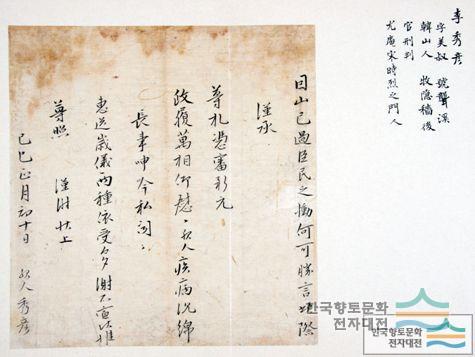 李秀彦
字美叔 號聾溪
韓山人 牧隱穡後
官刑判
尤庵宋時烈之門人
因山已過臣民之慟何可勝言此際
謹承
尊札憑審新元
政履萬相仰慰〃 弟人疾病沉綿
長事呻吟私悶〃
惠送歲儀兩種依受多謝不宣伏惟
尊照 謹謝狀上
己巳正月初十日 弟人秀彦
한국향토문화
전자대전
한국향토문화
전자대전